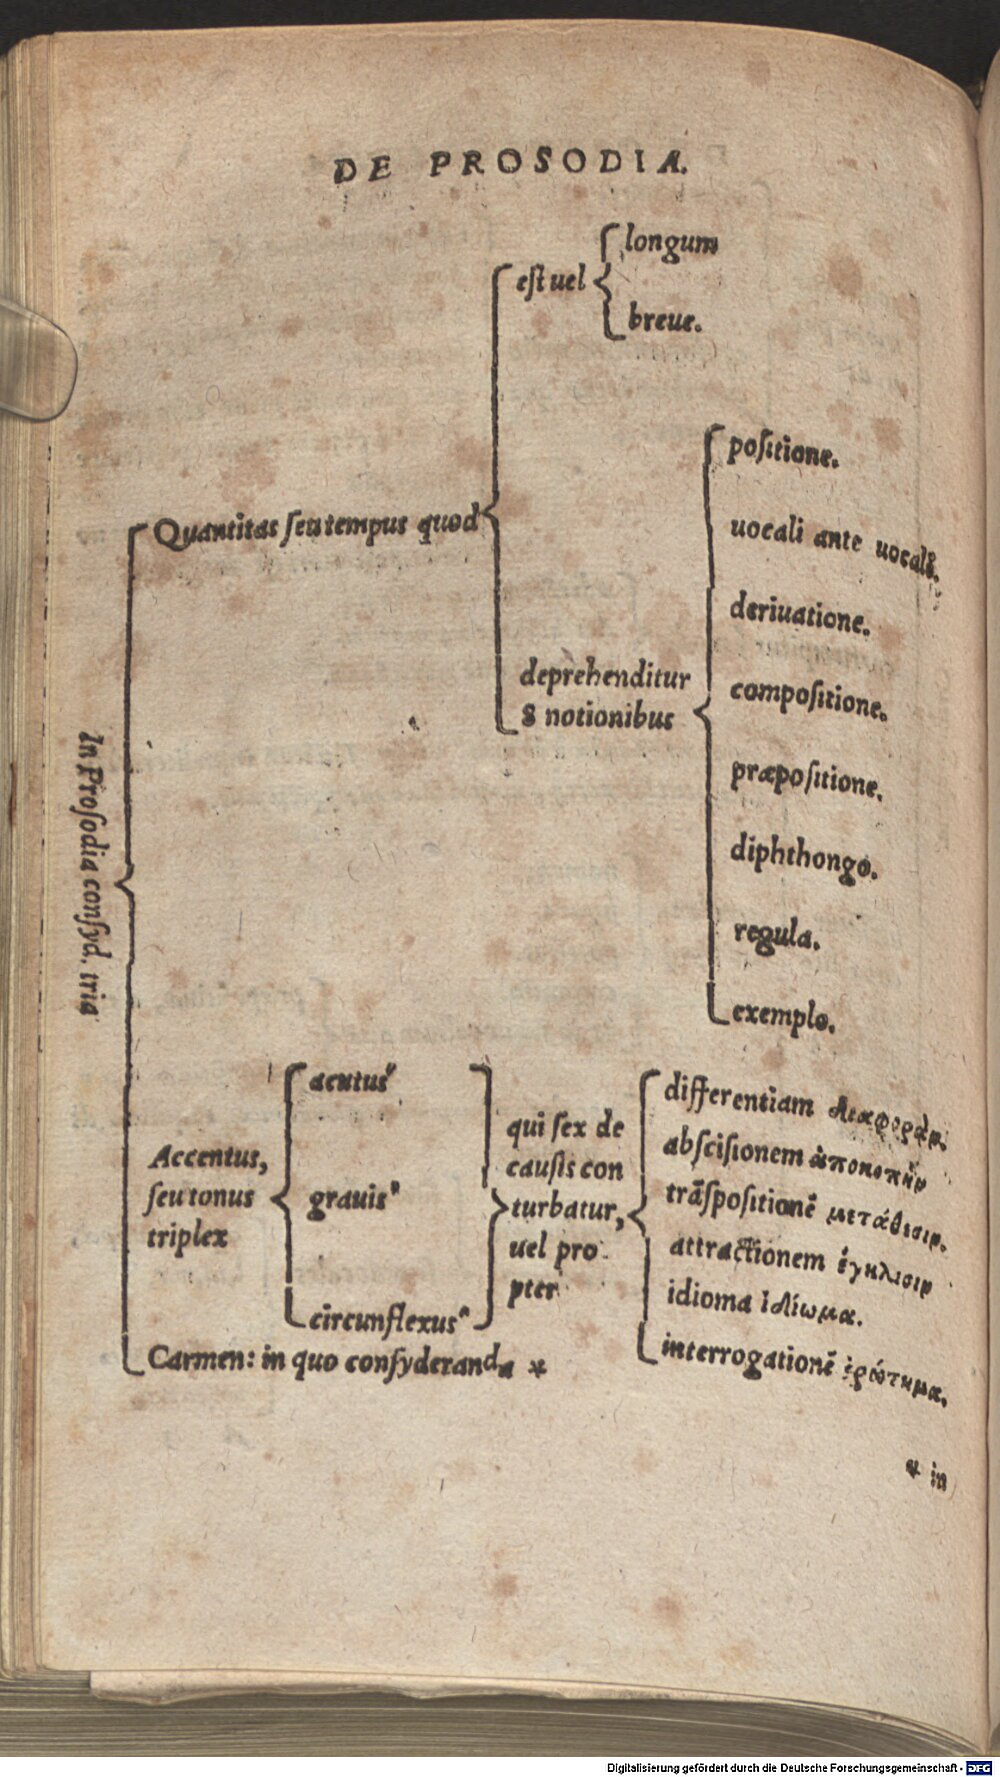 DE PROSODIA.
In Prosodia consyd. tria
Quantitas seu tempus quod
est uel
longum
breue.
deprehenditur
8 notionibus
positione.
uocali ante uocalē.
deriuatione.
compositione.
præpositione.
diphthongo.
regula.
exemplo.
Accentus,
seu tonus
triplex
acutus´
grauis`
circunflexus^
qui sex de
causis con
turbatur,
uel pro
pter
differentiam διαφοράν.
abscisionem ἀποκοπήν
trāspositionē μετάθεσιν.
attractionem ἔγκλισιν
idioma ἰδίωμα.
interrogationē ἐρώτημα.
Carmen: in quo consyderanda *
* in
Digitalisierung gefördert durch die Deutsche Forschungsgemeinschaft - DFG